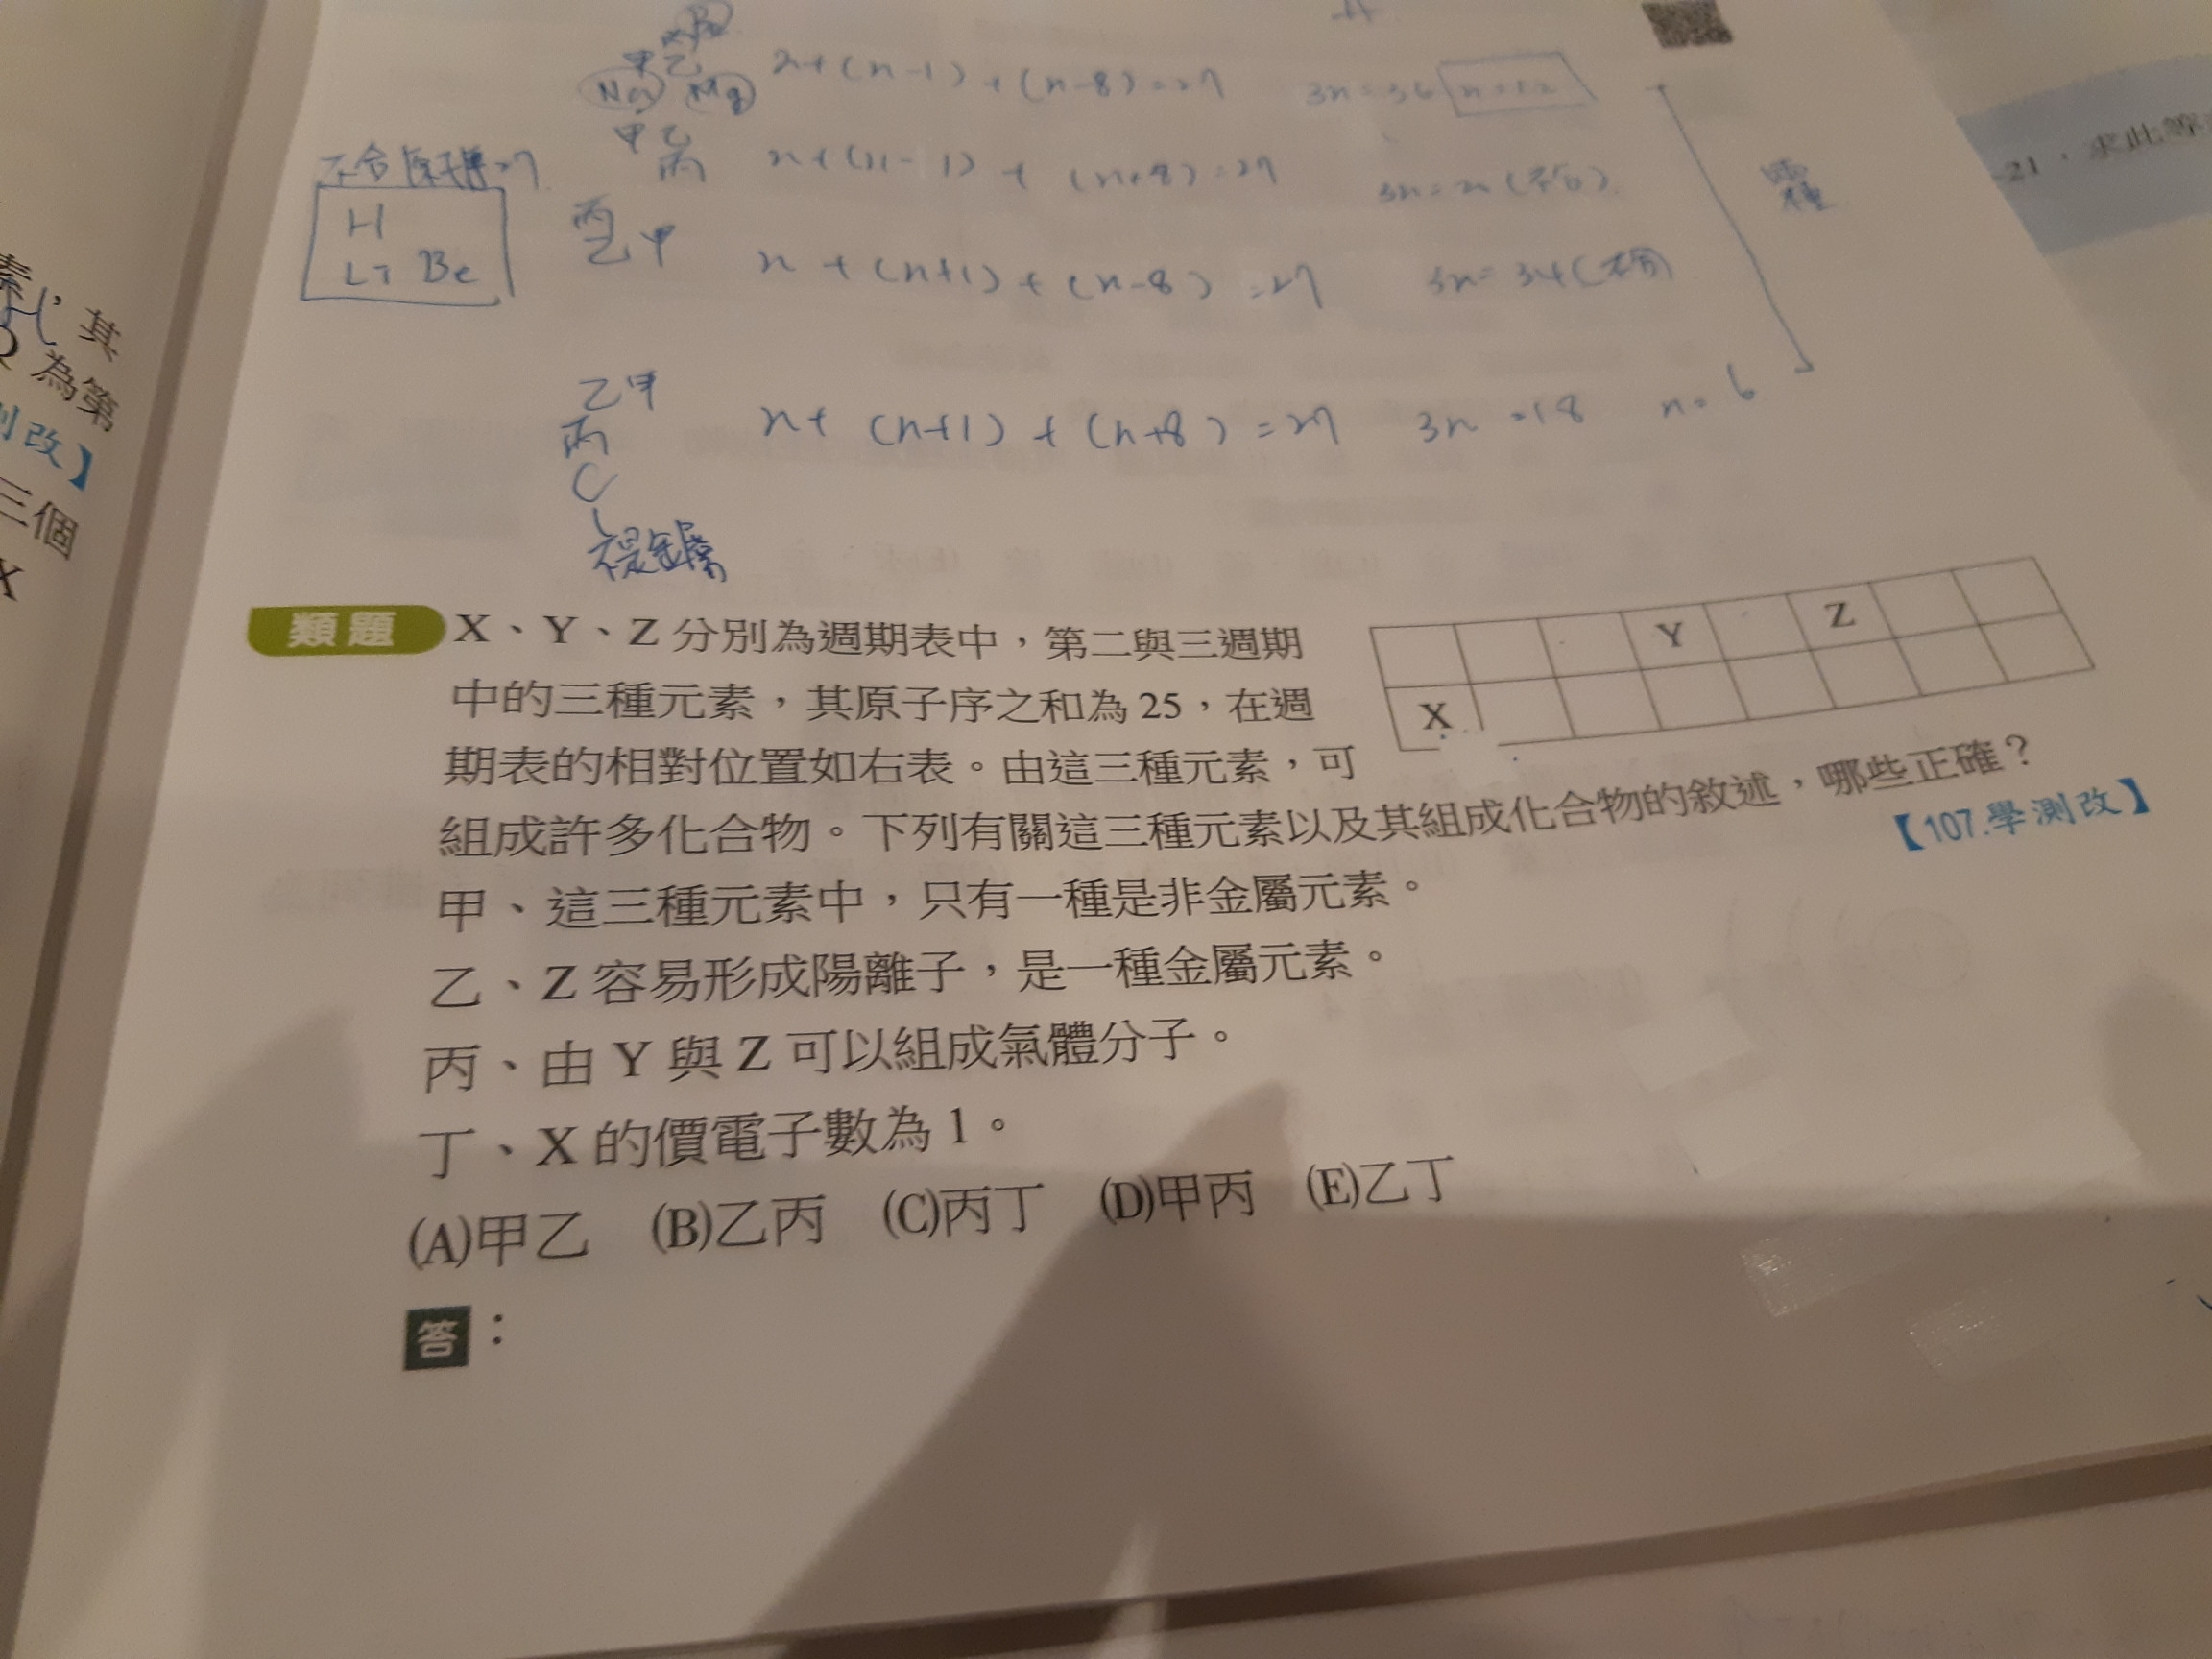 甲乙
Na Mg
n+(n-1)+(n-8)=27 3n=36 n=12
甲乙
丙
n+(n-1)+(n+8)=27
H
Li Be
丙
乙甲
n+(n+1)+(n-8)=27 3n=34
乙甲
丙
n+(n+1)+(n+8)=27 3n=18 n=6
C
-21，求此等
其
為第
改】
三個
X
類題 X、Y、Z 分別為週期表中，第二與三週期
中的三種元素，其原子序之和為 25，在週
期表的相對位置如右表。由這三種元素，可
組成許多化合物。下列有關這三種元素以及其組成化合物的敘述，哪些正確？
【107.學測改】
Y Z
X
甲、這三種元素中，只有一種是非金屬元素。
乙、Z 容易形成陽離子，是一種金屬元素。
丙、由 Y 與 Z 可以組成氣體分子。
丁、X 的價電子數為 1。
(A)甲乙 (B)乙丙 (C)丙丁 (D)甲丙 (E)乙丁
答：